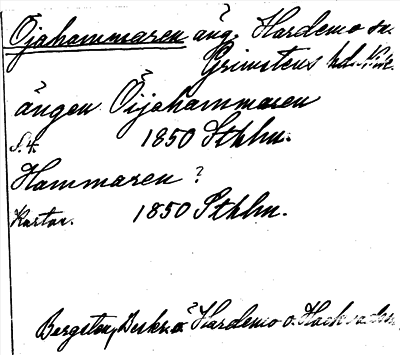 Öjahammaren äng. Hardemo sn.
Grimstens hd. Närke.
ängen Öijahammaren
S. 4. 1850 Sthlm.
Hammaren?
Kartan. 1850 Sthlm.
Bergsten, Beskr. ö. Hardemo o. Kock